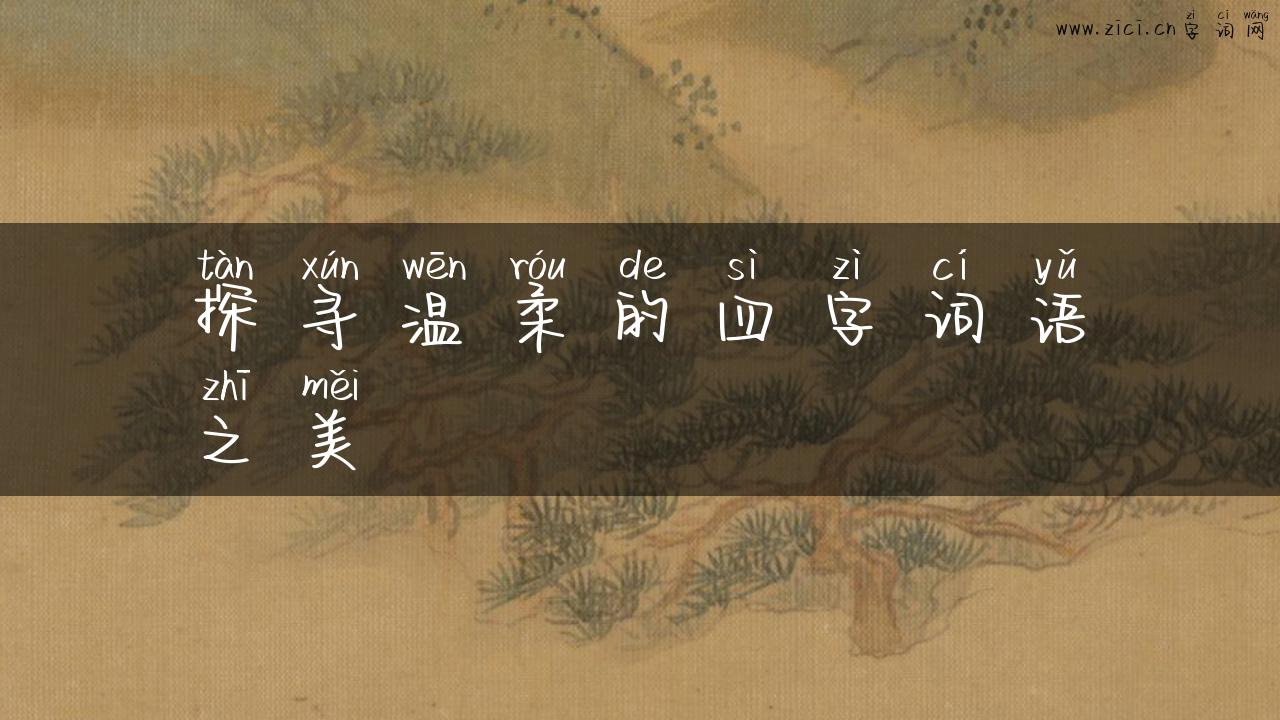 zì cí wǎng
www.zici.cn 字词网
tàn xún wēn róu de sì zì cí yǔ
探寻温柔的四字词语
zhī měi
之美